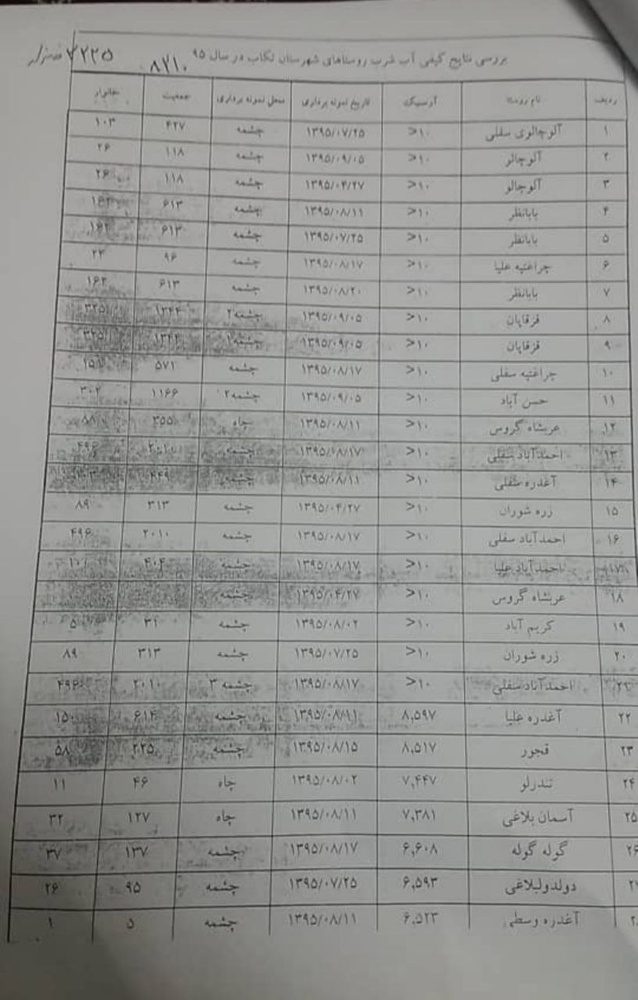 بررسی نتایج کیفی آب شرب روستاهای شهرستان تکاب در سال ۹۵ ۸۷۱۰ ۳۲۲۵
ردیف نام روستا آرسنیک تاریخ نمونه برداری محل نمونه برداری جمعیت خانوار
۱ آلوچالوی سفلی >۱۰ ۱۳۹۵/۰۷/۲۵ چشمه ۴۲۷ ۱۰۳
۲ آلوچالو >۱۰ ۱۳۹۵/۰۹/۰۵ چشمه ۱۱۸ ۲۶
۳ آلوچالو >۱۰ ۱۳۹۵/۰۴/۲۷ چشمه ۱۱۸ ۲۶
۴ بابانظر >۱۰ ۱۳۹۵/۰۸/۱۱ چشمه ۶۱۳ ۱۶۲
۵ بابانظر >۱۰ ۱۳۹۵/۰۷/۲۵ چشمه ۶۱۳ ۱۶۲
۶ چراغتپه علیا >۱۰ ۱۳۹۵/۰۸/۱۷ چشمه ۹۶ ۲۴
۷ بابانظر >۱۰ ۱۳۹۵/۰۸/۲۰ چشمه ۶۱۳ ۱۶۲
۸ قزقاپان >۱۰ ۱۳۹۵/۰۹/۰۵ چشمه۲ ۱۳۴۴ ۳۲۵
۹ قزقاپان >۱۰ ۱۳۹۵/۰۹/۰۵ چشمه۱ ۱۳۴۴ ۳۲۵
۱۰ چراغتپه سفلی >۱۰ ۱۳۹۵/۰۸/۱۷ چشمه ۵۷۱ ۱۵۱
۱۱ حسن آباد >۱۰ ۱۳۹۵/۰۹/۰۵ چشمه۲ ۱۱۶۶ ۳۰۲
۱۲ عربشاه گروس >۱۰ ۱۳۹۵/۰۸/۱۱ چاه ۳۵۵ ۸۸
۱۳ احمدآباد سفلی >۱۰ ۱۳۹۵/۰۸/۱۷ چشمه ۴۹۶
۱۴ آغدره سفلی >۱۰ ۱۳۹۵/۰۸/۱۱ چشمه ۴۴۹
۱۵ زره شوران >۱۰ ۱۳۹۵/۰۴/۲۷ چشمه ۳۱۳ ۸۹
۱۶ احمدآباد سفلی >۱۰ ۱۳۹۵/۰۸/۱۷ چشمه ۲۰۱۰ ۴۹۶
۱۷ احمدآباد علیا >۱۰ ۱۳۹۵/۰۸/۱۷ چشمه ۴۰۴
۱۸ عربشاه گروس >۱۰ ۱۳۹۵/۰۴/۲۷ چشمه
۱۹ کریم آباد >۱۰ ۱۳۹۵/۰۸/۰۲ چشمه ۳۱ ۵
۲۰ زره شوران >۱۰ ۱۳۹۵/۰۷/۲۵ چشمه ۳۱۳ ۸۹
۲۱ احمدآباد سفلی >۱۰ ۱۳۹۵/۰۸/۱۷ چشمه ۳ ۲۰۱۰ ۴۹۶
۲۲ آغدره علیا ۸,۵۹۷ ۱۳۹۵/۰۸/۱۱ چشمه ۶۱۴ ۱۵۰
۲۳ قجور ۸,۵۱۷ ۱۳۹۵/۰۸/۱۵ چشمه ۲۲۵ ۵۸
۲۴ تندرلو ۷,۴۴۷ ۱۳۹۵/۰۸/۰۲ چاه ۴۶ ۱۱
۲۵ آسمان بلاغی ۷,۳۸۱ ۱۳۹۵/۰۸/۱۱ چاه ۱۲۷ ۳۲
۲۶ گوله گوله ۶,۶۰۸ ۱۳۹۵/۰۸/۱۷ چشمه ۱۳۷ ۳۷
دولدولبلاغی ۶,۵۹۳ ۱۳۹۵/۰۷/۲۵ چشمه ۹۵ ۲۶
آغدره وسطی ۶,۵۲۳ ۱۳۹۵/۰۸/۱۱ چشمه ۵ ۱